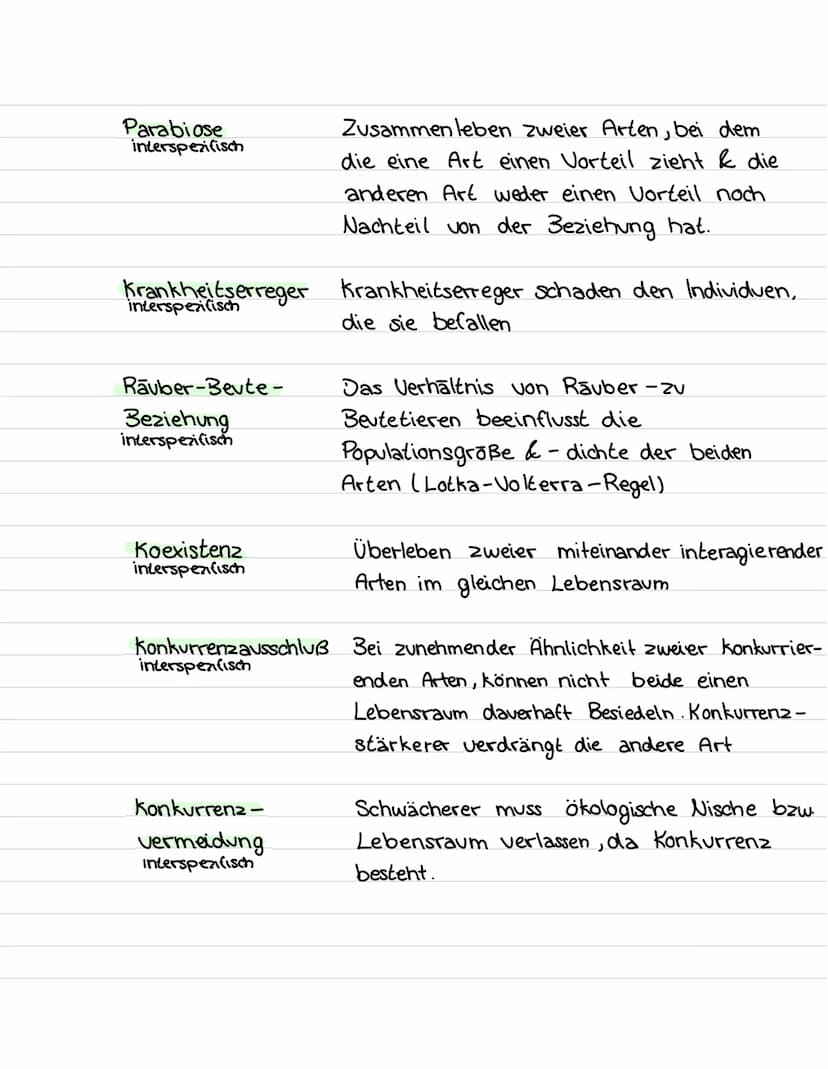 Parabiose Zusammenleben zweier Arten, bei dem
interspezifisch
die eine Art einen Vorteil zieht & die
anderen Art weder einen Vorteil noch
Nachteil von der Beziehung hat.
Krankheitserreger Krankheitserreger schaden den Individuen,
interspezifisch
die sie befallen
Räuber-Beute- Das Verhältnis von Räuber-zu
Beziehung Beutetieren beeinflusst die
interspezifisch
Populationsgröße & -dichte der beiden
Arten (Lotka-Volterra-Regel)
Koexistenz Überleben zweier miteinander interagierender
interspezifisch
Arten im gleichen Lebensraum
Konkurrenzausschluß Bei zunehmender Ähnlichkeit zweier konkurrier-
interspezifisch
enden Arten, können nicht beide einen
Lebensraum dauerhaft Besiedeln. Konkurrenz-
stärkerer verdrängt die andere Art
Konkurrenz- Schwächerer muss ökologische Nische bzw.
vermeidung Lebensraum verlassen, da Konkurrenz
interspezifisch
besteht.